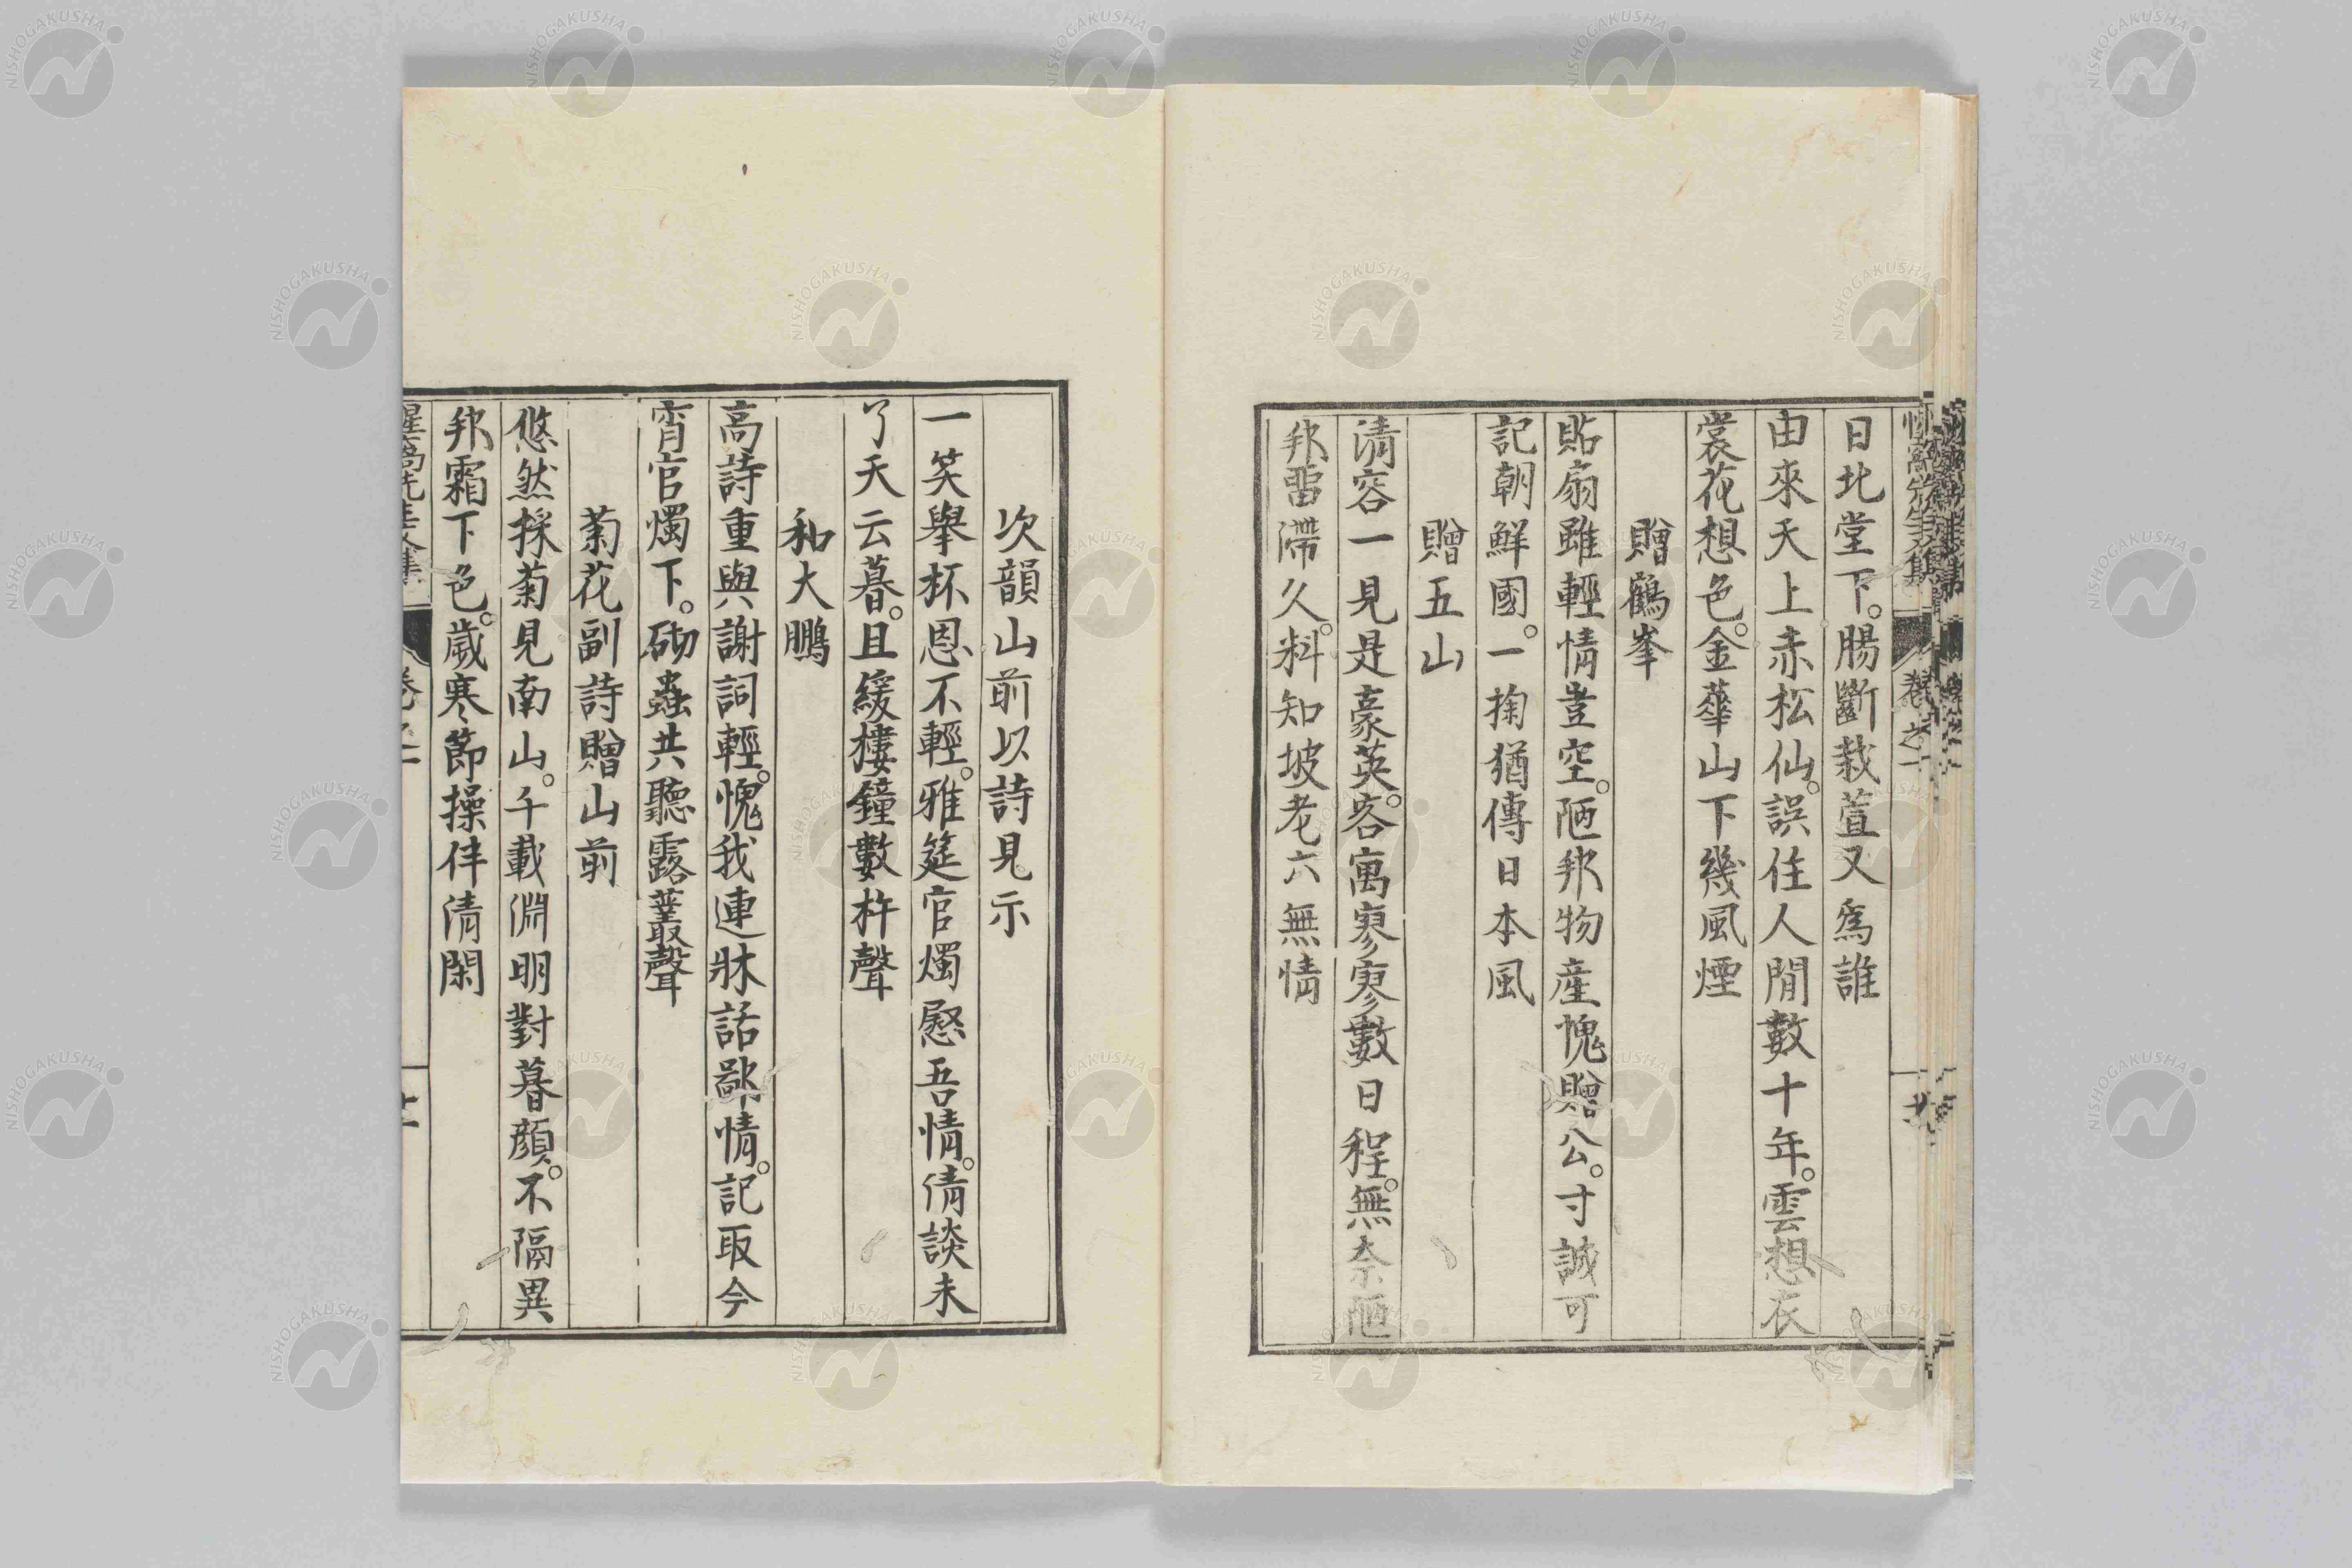 日北堂下。腸斷栽萱又爲誰
由來天上赤松仙。誤住人間數十年。雲想衣
裳花想色。金華山下幾風煙
贈鶴峯
貼扇雖輕情豈空。陋邦物産愧贈公。寸誠可
記朝鮮國。一掬猶傳日本風
贈五山
清容一見是豪英。客寓寥寥數日程。無奈陋
邦畱滯久。料知坡老亦無情
次韻山前以詩見示
一笑擧杯恩不輕。雅筵官燭慰吾情。倩談未
了天云暮。且緩樓鐘數杵聲
和大鵬
高詩重與謝詞輕。愧我連牀話鄙情。記取今
宵官燭下。砌蟲共聽露叢聲
菊花副詩贈山前
悠然採菊見南山。千載淵明對暮顔。不隔異
邦霜下色。歲寒節操伴清閑
惺窩先生文集 卷之一